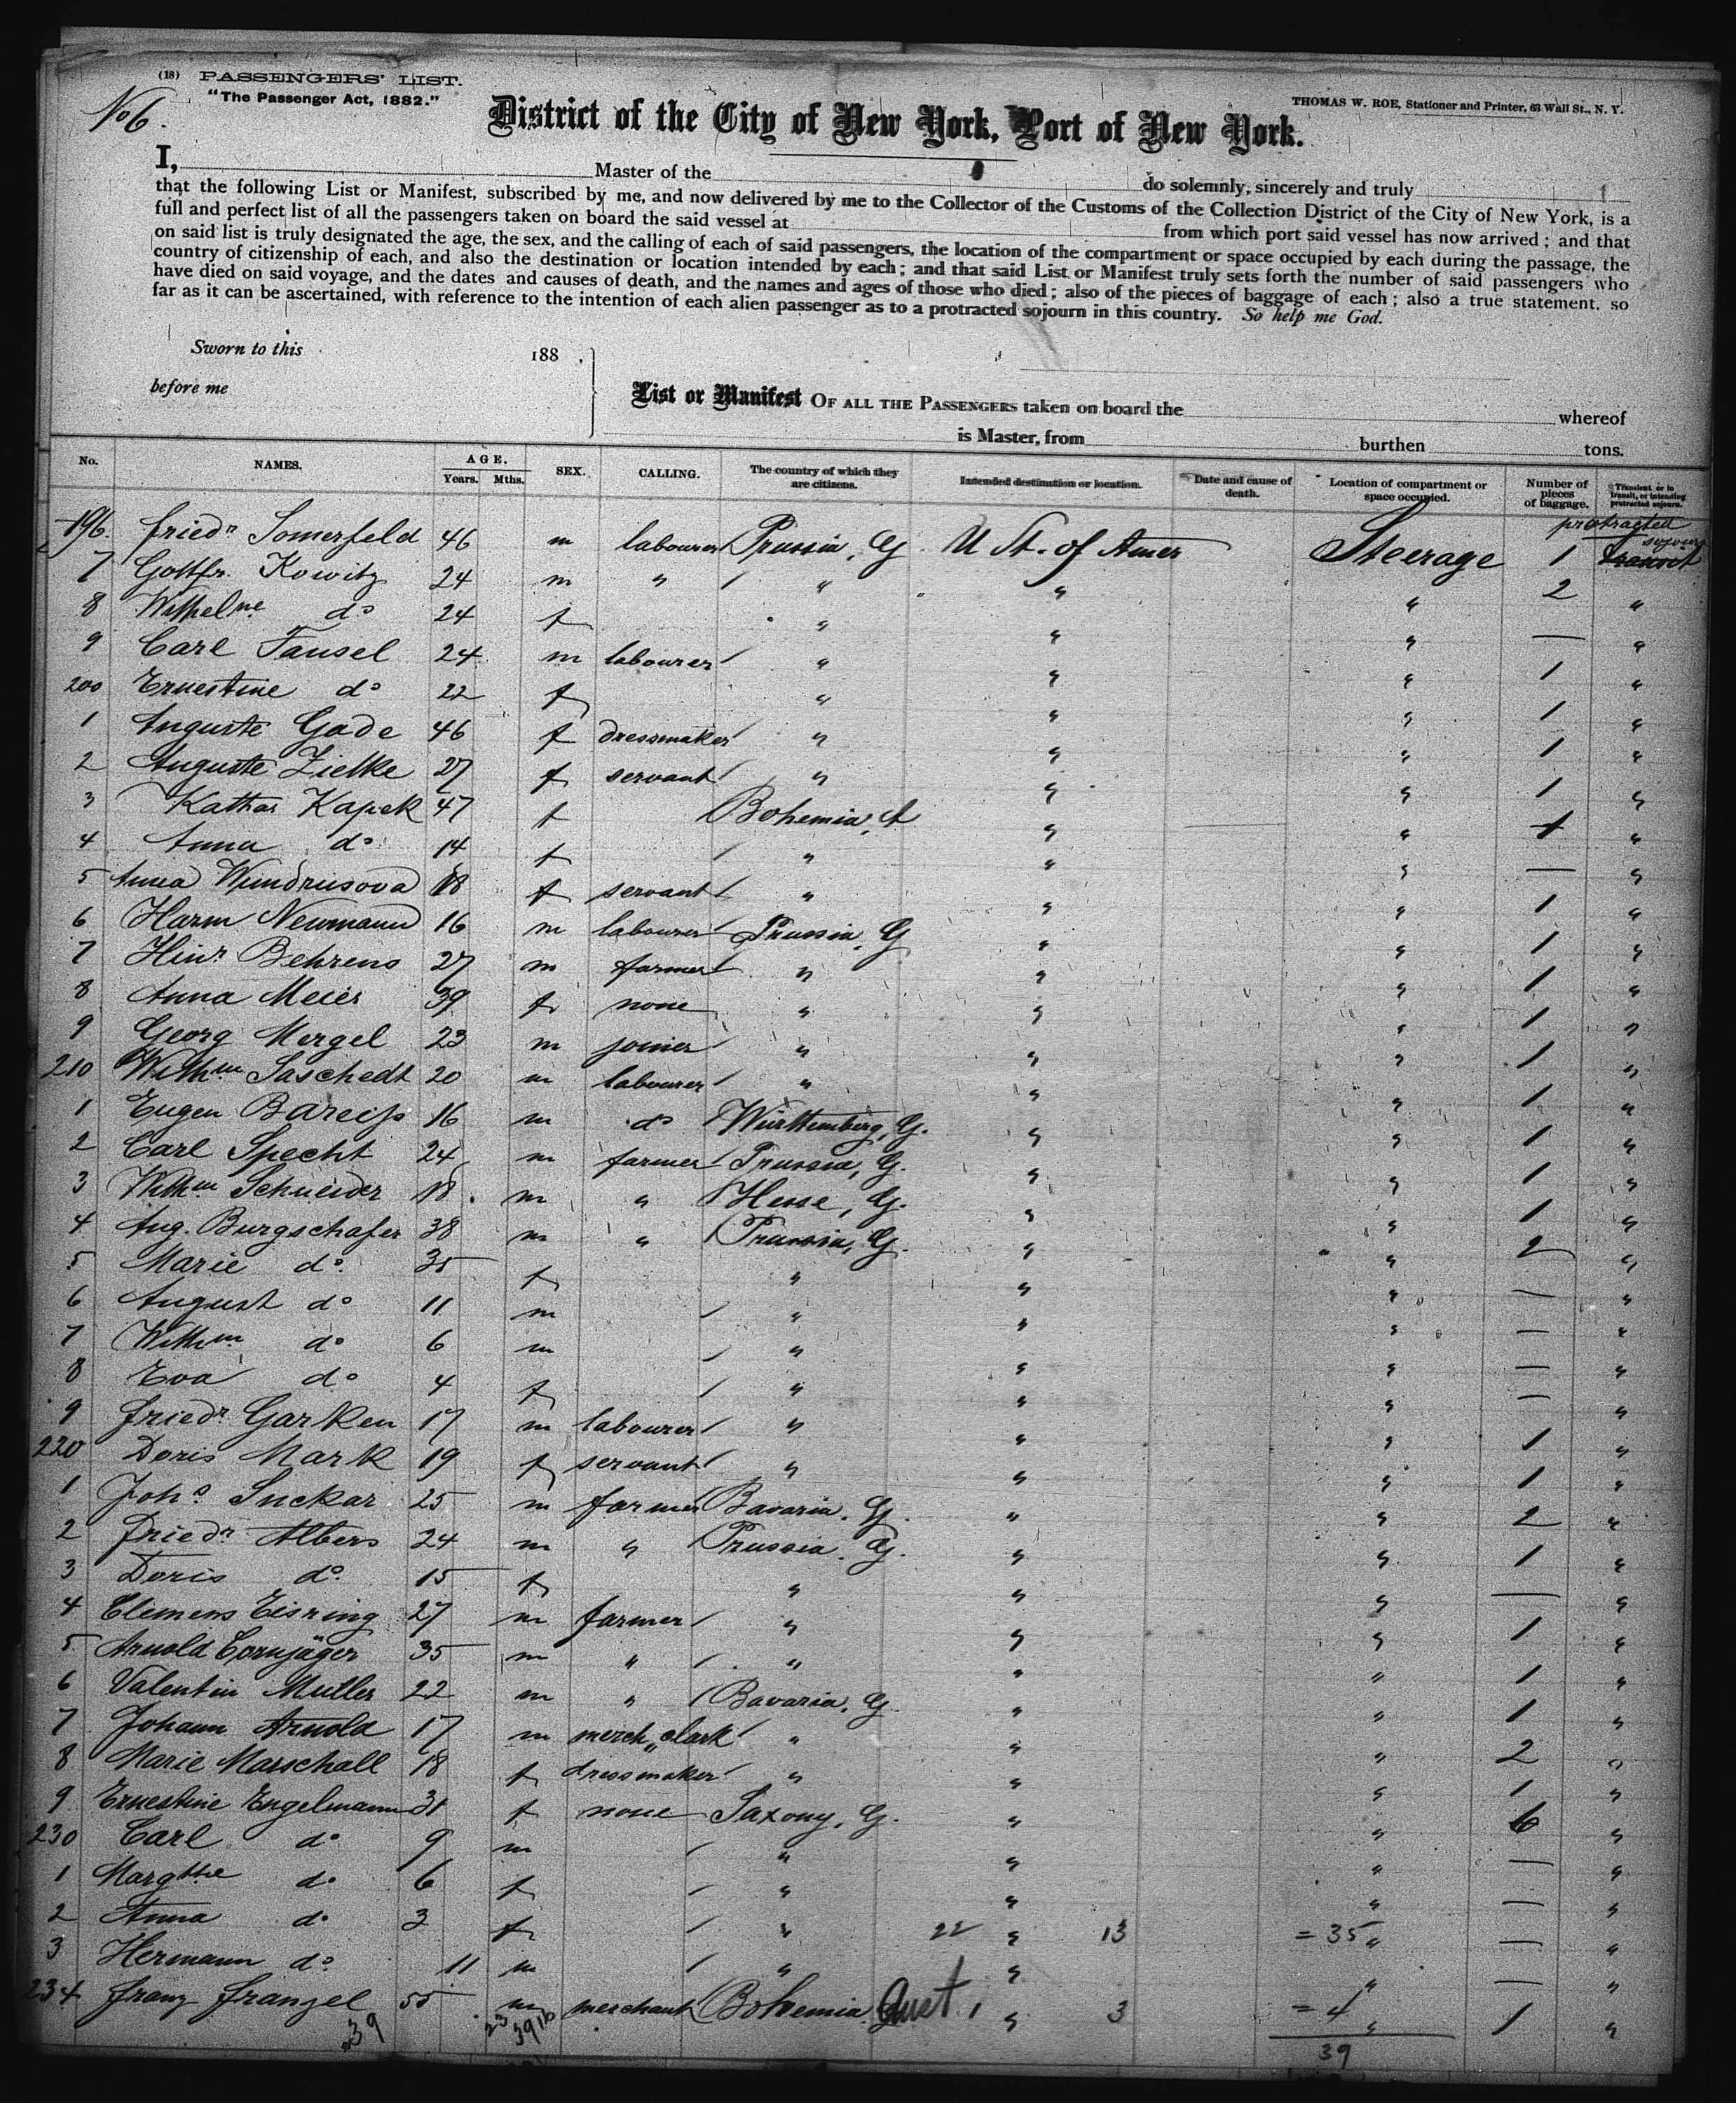 (18) PASSENGERS' LIST.
"The Passenger Act, 1882."
THOMAS W. ROE, Stationer and Printer, 63 Wall St., N. Y.
No 6.
District of the City of New York, Port of New York.
I, Master of the do solemnly, sincerely and truly
that the following List or Manifest, subscribed by me, and now delivered by me to the Collector of the Customs of the Collection District of the City of New York, is a
full and perfect list of all the passengers taken on board the said vessel at from which port said vessel has now arrived; and that
on said list is truly designated the age, the sex, and the calling of each of said passengers, the location of the compartment or space occupied by each during the passage, the
country of citizenship of each, and also the destination or location intended by each; and that said List or Manifest truly sets forth the number of said passengers who
have died on said voyage, and the dates and causes of death, and the names and ages of those who died; also of the pieces of baggage of each; also a true statement, so
far as it can be ascertained, with reference to the intention of each alien passenger as to a protracted sojourn in this country. So help me God.
Sworn to this 188 .
before me
List or Manifest OF ALL THE PASSENGERS taken on board the whereof
is Master, from burthen tons.
No. NAMES. AGE. Years. Mths. SEX. CALLING. The country of which they are citizens. Intended destination or location. Date and cause of death. Location of compartment or space occupied. Number of pieces of baggage. Transient or in transit, or intending protracted sojourn.
protracted sojourn
196. Friedr Somerfeld 46 m labourer Prussia, G U St. of Amer Steerage 1 transit
7 Gottfr. Kowitz 24 m " " " " 2 "
8 Wilhelme do 24 f " " " — "
9 Carl Fansel 24 m labourer " " " 1 "
200 Ernestine do 22 f " " " 1 "
1 Auguste Gade 46 f dressmaker " " " 1 "
2 Auguste Zielke 27 f servant " " " 1 "
3 Kathar Kapek 47 f Bohemia, A " " 1 "
4 Anna do 14 f " " " — "
5 Anna Wundrusova 18 f servant " " " 1 "
6 Harm Newmann 16 m labourer Prussia, G " " 1 "
7 Hinr Behrens 27 m farmer " " " 1 "
8 Anna Meier 39 f none " " " 1 "
9 Georg Mergel 23 m joiner " " " 1 "
210 Wilhm Saschedt 20 m labourer " " " 1 "
1 Eugen Bareiss 16 m do Württemberg, G. " " 1 "
2 Carl Specht 24 m farmer Prussia, G. " " 1 "
3 Wilhm Schneider 18. m " Hesse, G. " " 1 "
4 Aug. Burgschafer 38 m " Prussia, G. " " 2 "
5 Marie do 35 f " " " — "
6 August do 11 m " " " — "
7 Wilhm do 6 m " " " — "
8 Eva do 4 f " " " — "
9 Friedr Garken 17 m labourer " " " 1 "
220 Doris Mark 19 f servant " " " 1 "
1 Johs Suckar 25 m farmer Bavaria. G. " " 2 "
2 Friedr Albers 24 m " Prussia. G. " " 1 "
3 Doris do 15 f " " " — "
4 Clemens Eisring 27 m farmer " " " 1 "
5 Arnold Cornjäger 35 m " " " " 1 "
6 Valentin Muller 22 m " Bavaria, G. " " 1 "
7 Johann Arnold 17 m merch. clark " " " 2 "
8 Marie Marschall 18 f dressmaker " " " 1 "
9 Ernestine Engelmann 31 f none Saxony, G. " " 6 "
230 Carl do 9 m " " " — "
1 Margthe do 6 f " " " — "
2 Anna do 3 f " 22 " 13 = 35 " — "
3 Hermann do 11 m " " " — "
234 Franz Franzel 55 m merchant Bohemia Aust. 1 " 3 = 4 " 1 "
39 23 39 16 39